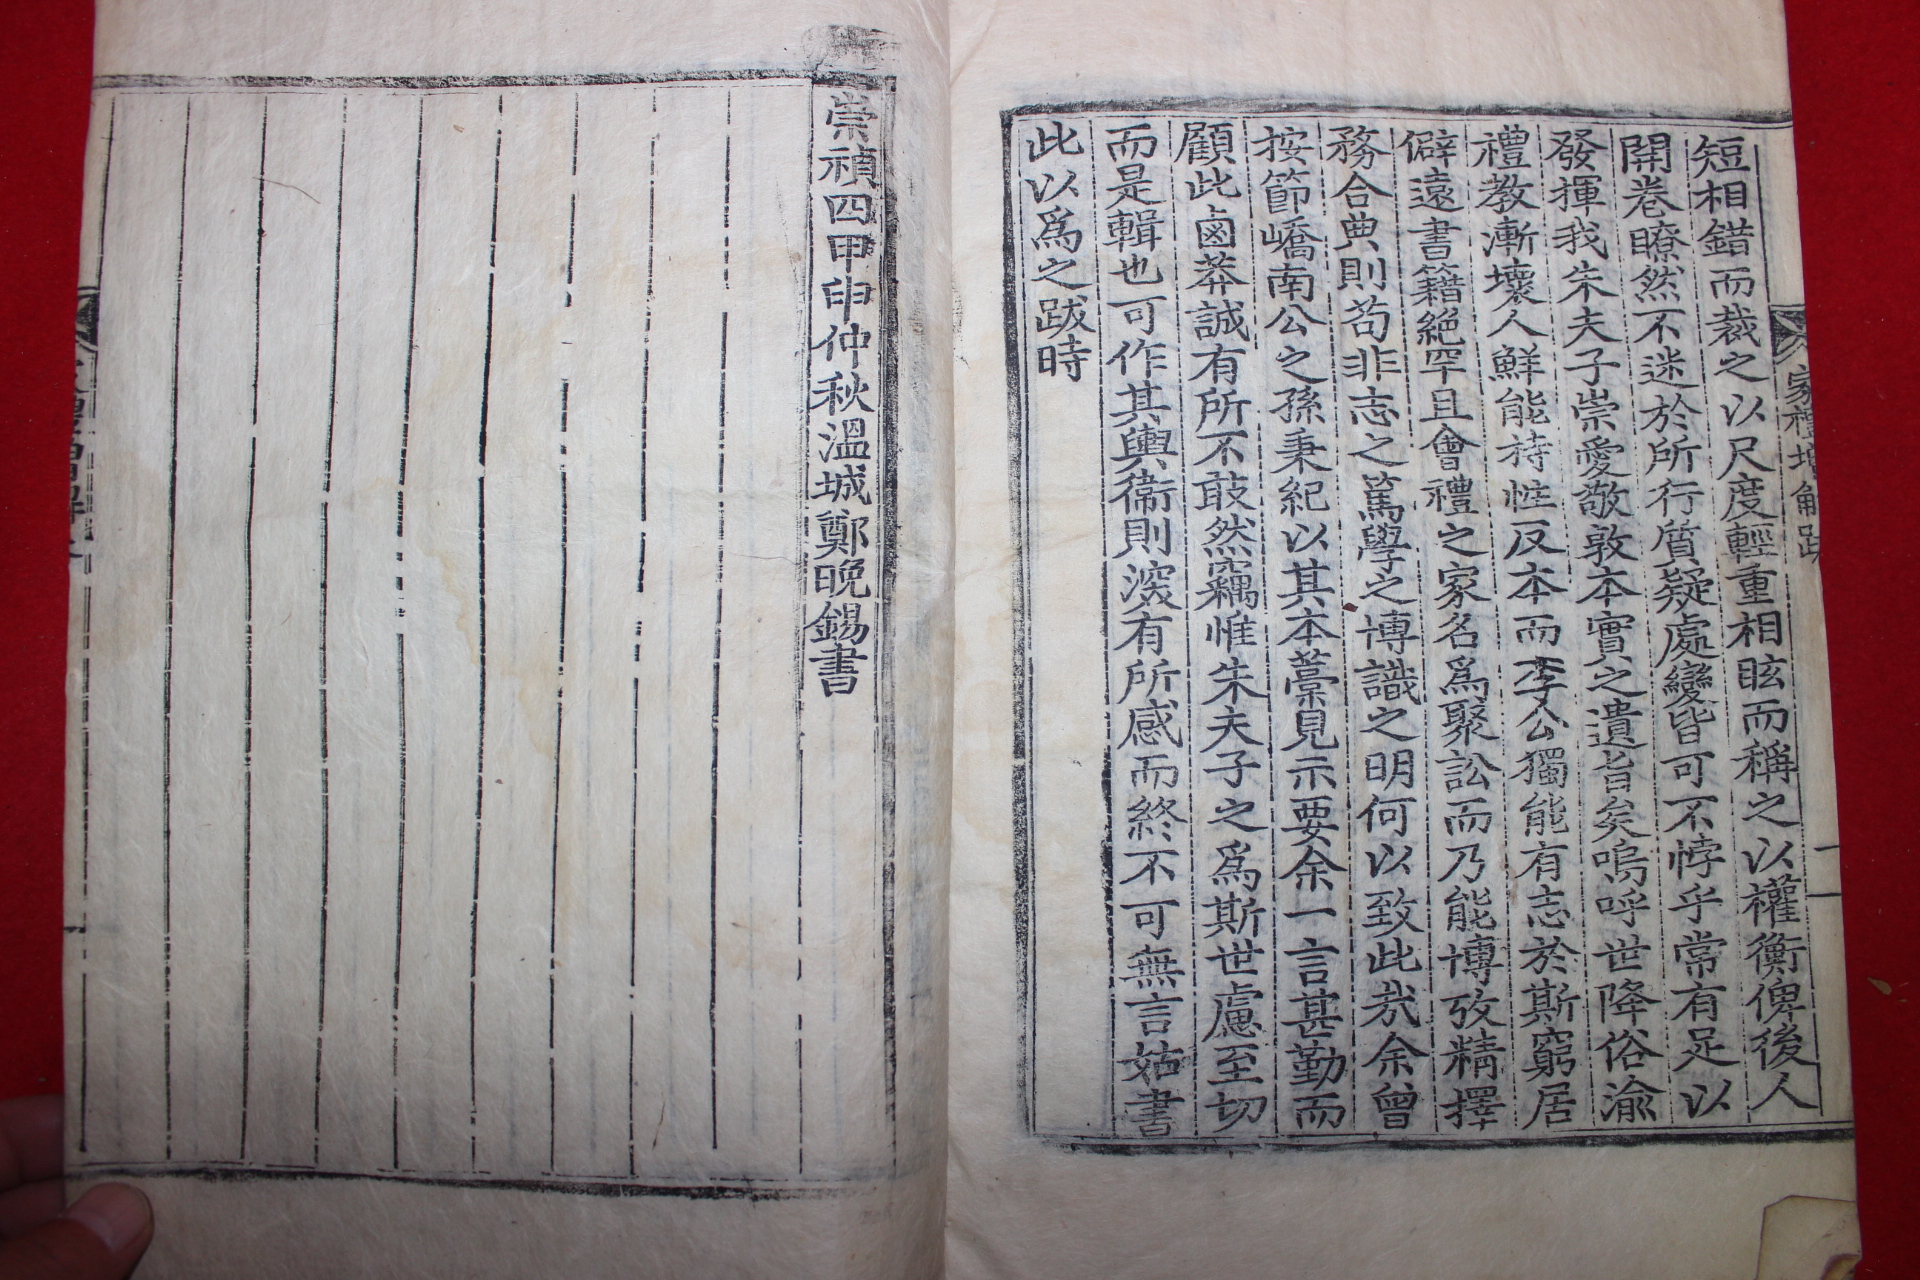 短相錯而裁之以尺度輕重相眩而稱之以權衡俾後人
開卷瞭然不迷於所行質疑處變皆可不悖乎常有足以
發揮我朱夫子崇愛敬敦本實之遺旨矣嗚呼世降俗渝
禮教漸壞人鮮能持性反本而李公獨能有志於斯窮居
僻遠書籍絕罕且會禮之家名爲聚訟而乃能博攷精擇
務合典則苟非志之篤學之博識之明何以致此哉余曾
按節嶠南公之孫秉紀以其本藁見示要余一言甚勤而
顧此鹵莽誠有所不敢然竊惟朱夫子之爲斯世慮至切
而是輯也可作其輿衞則深有所感而終不可無言姑書
此以爲之跋時
家禮增解跋
二
崇禎四甲申仲秋溫城鄭晚錫書